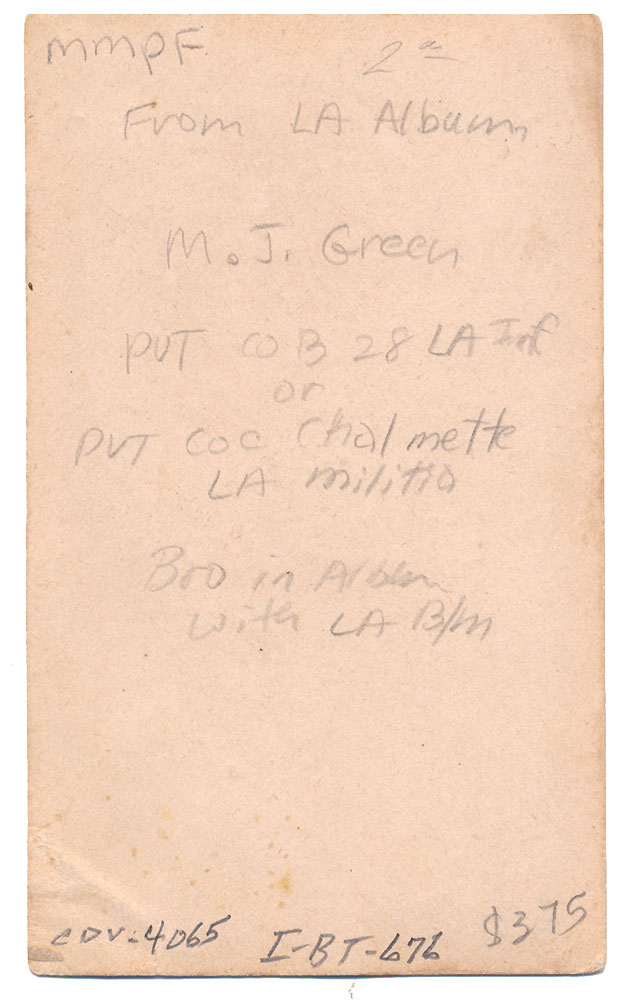 MMPF
2
From LA Album
M. J. Green
PVT CO B 28 LA Inf
or
PVT CO C Chalmette
LA militia
Bro in Album
with LA B/M
CDV-4065 I-BT-676 $375